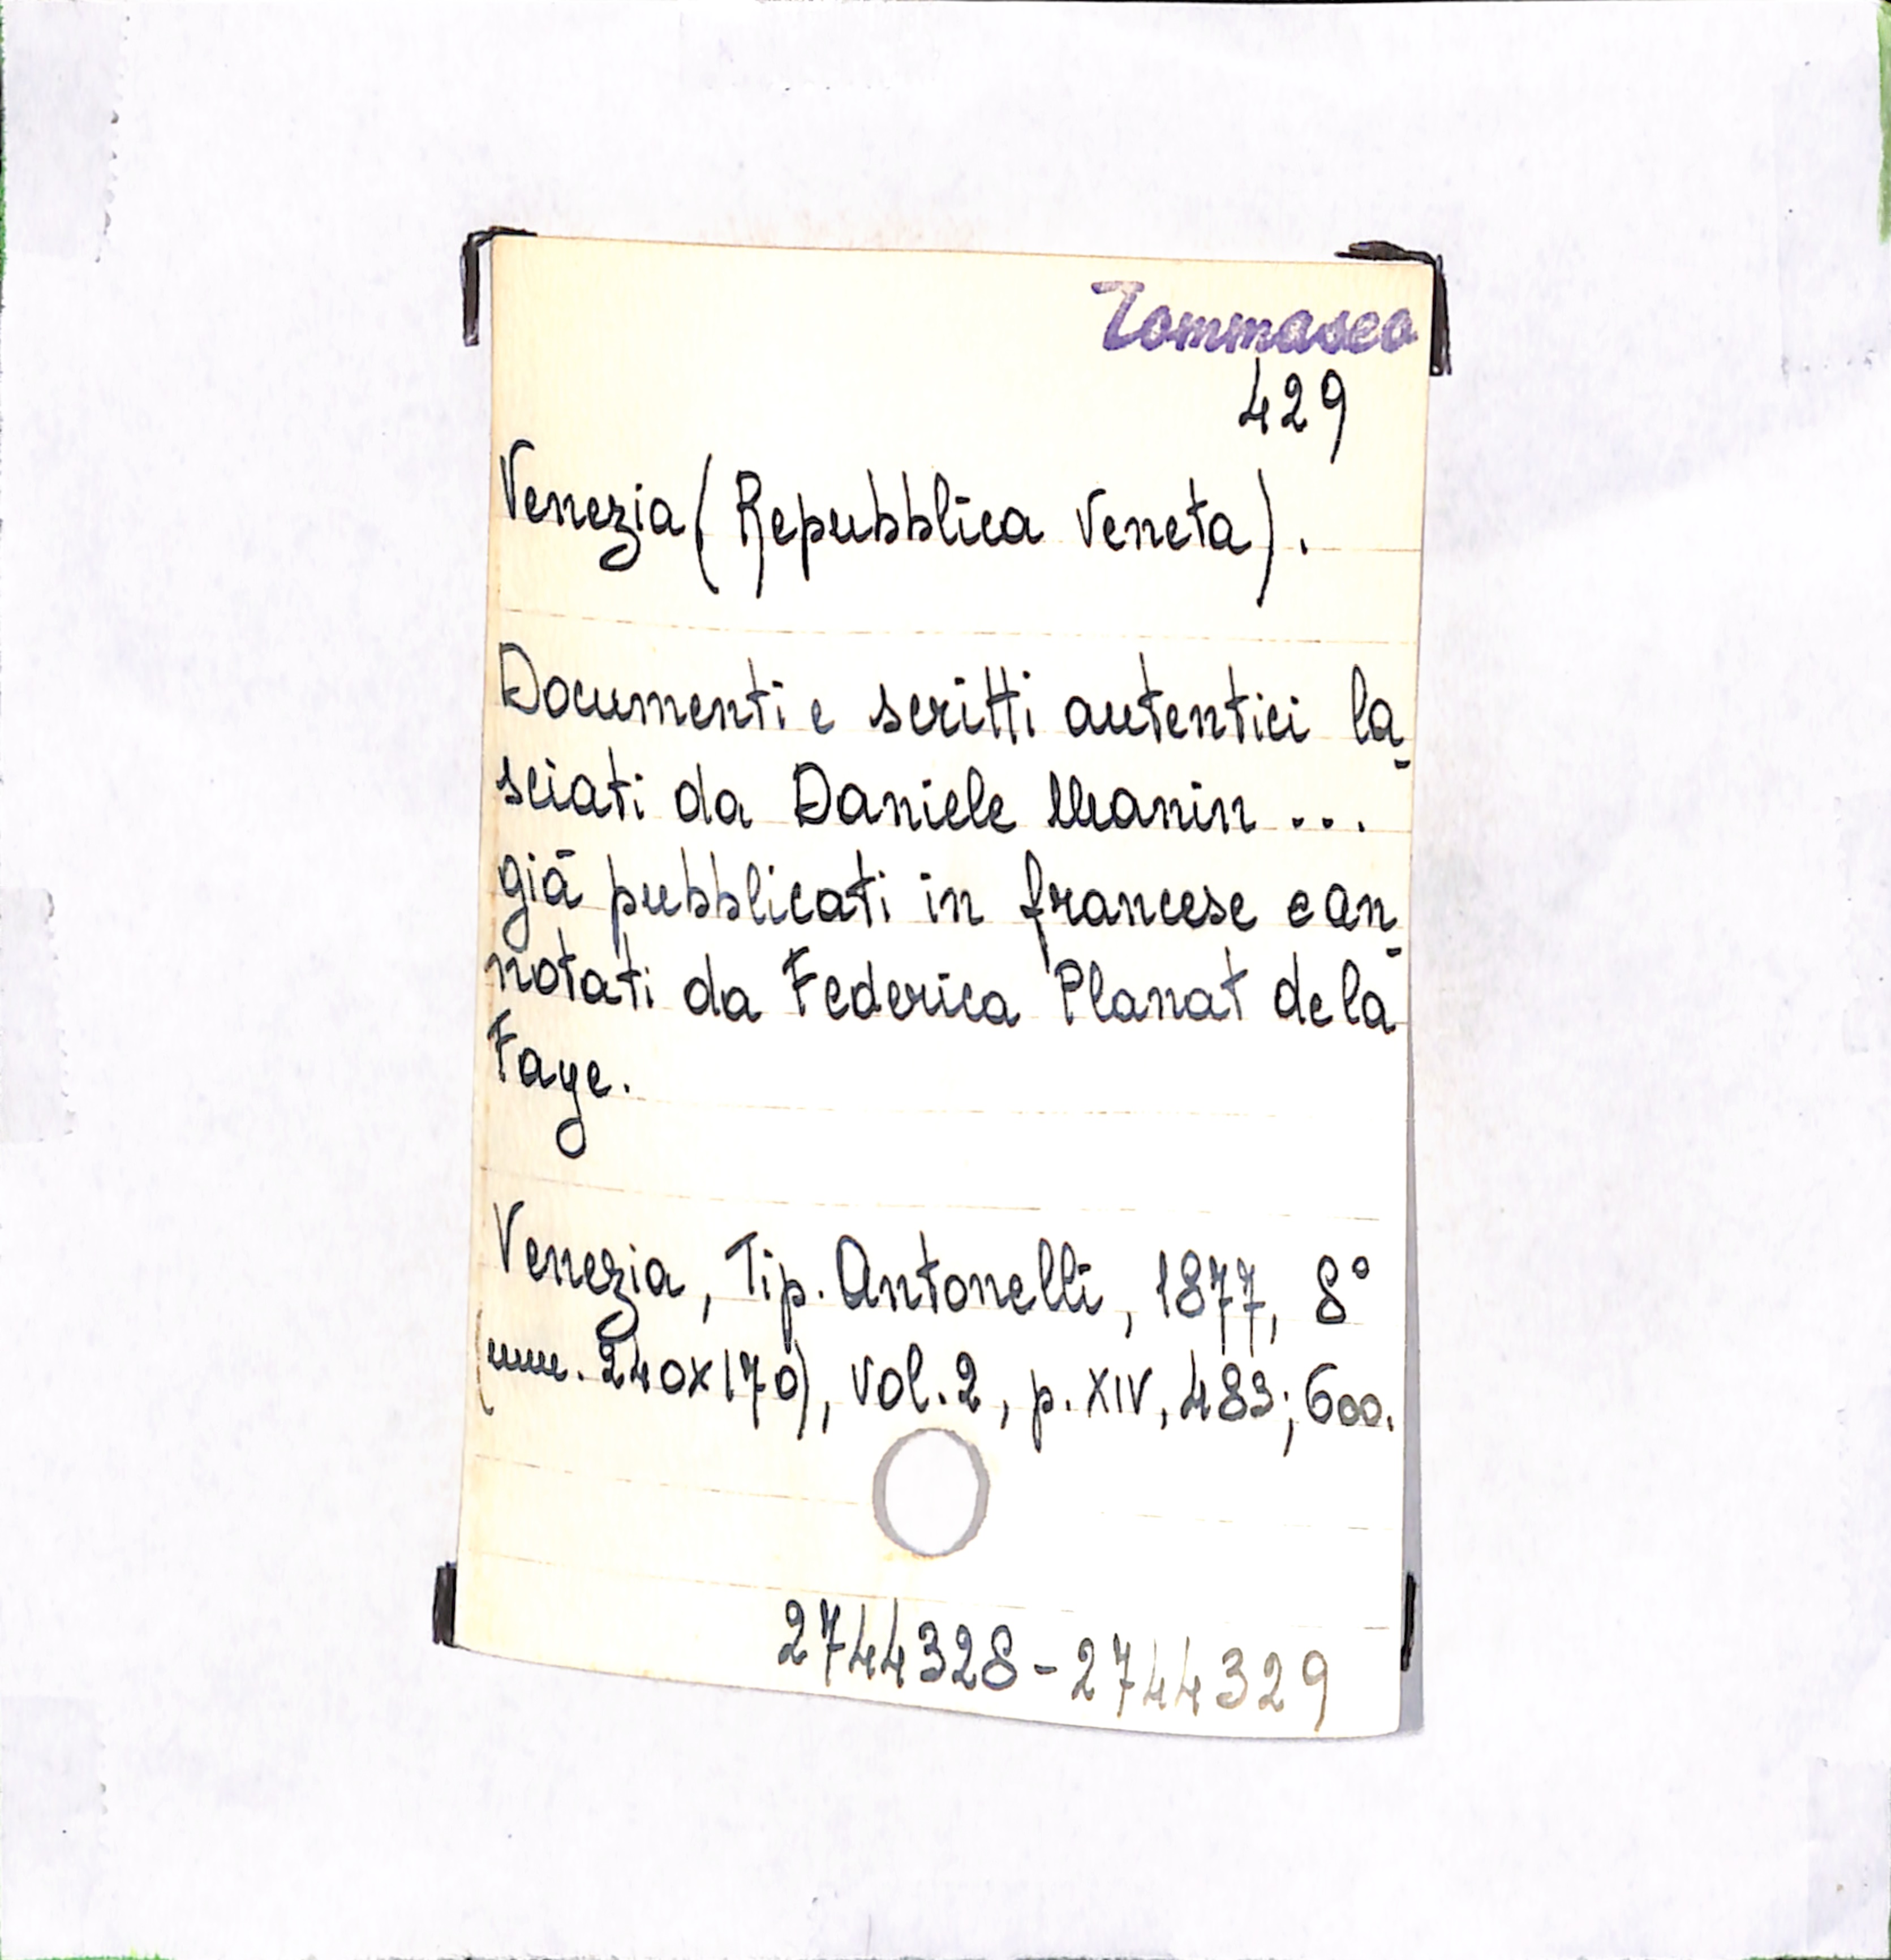 Tommaseo
429
Venezia (Repubblica Veneta).
Documenti e scritti autentici la-
sciati da Daniele Manin ...
già pubblicati in francese e an-
notati da Federica Planat de la
Faye.
Venezia, Tip. Antonelli, 1877, 8°
(mm. 240x170), vol. 2, p. XIV, 483; 600.
2744328-2744329